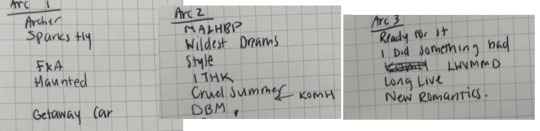 Arc 1
Archer
Sparks Fly
FKA
Haunted
Getaway Car
Arc 2
MA&HBP
Wildest Dreams
Style
ITHK
Cruel Summer ← KOMH
DBM
Arc 3
Ready for it
I Did something bad
LWYMMD
Long Live
New Romantics.